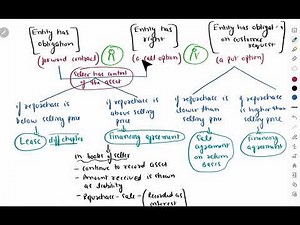 [Entity has obligation]
(forward contract)
[Entity has right]
(a call option)
[Entity has obligat-n on customer request]
(a put option)
R
R
Seller has control of the asset
if repurchase is below selling price
Lease
diff chapter
if repurchase is above selling price
Financing agreement
in books of seller
- continue to record asset
- Amount received is shown as liability
- Repurchase - sale - (Recorded as interest
if repurchase is lower than selling price
Sale agreement on return Basis
if repurchase is higher than selling price
Financing agreement